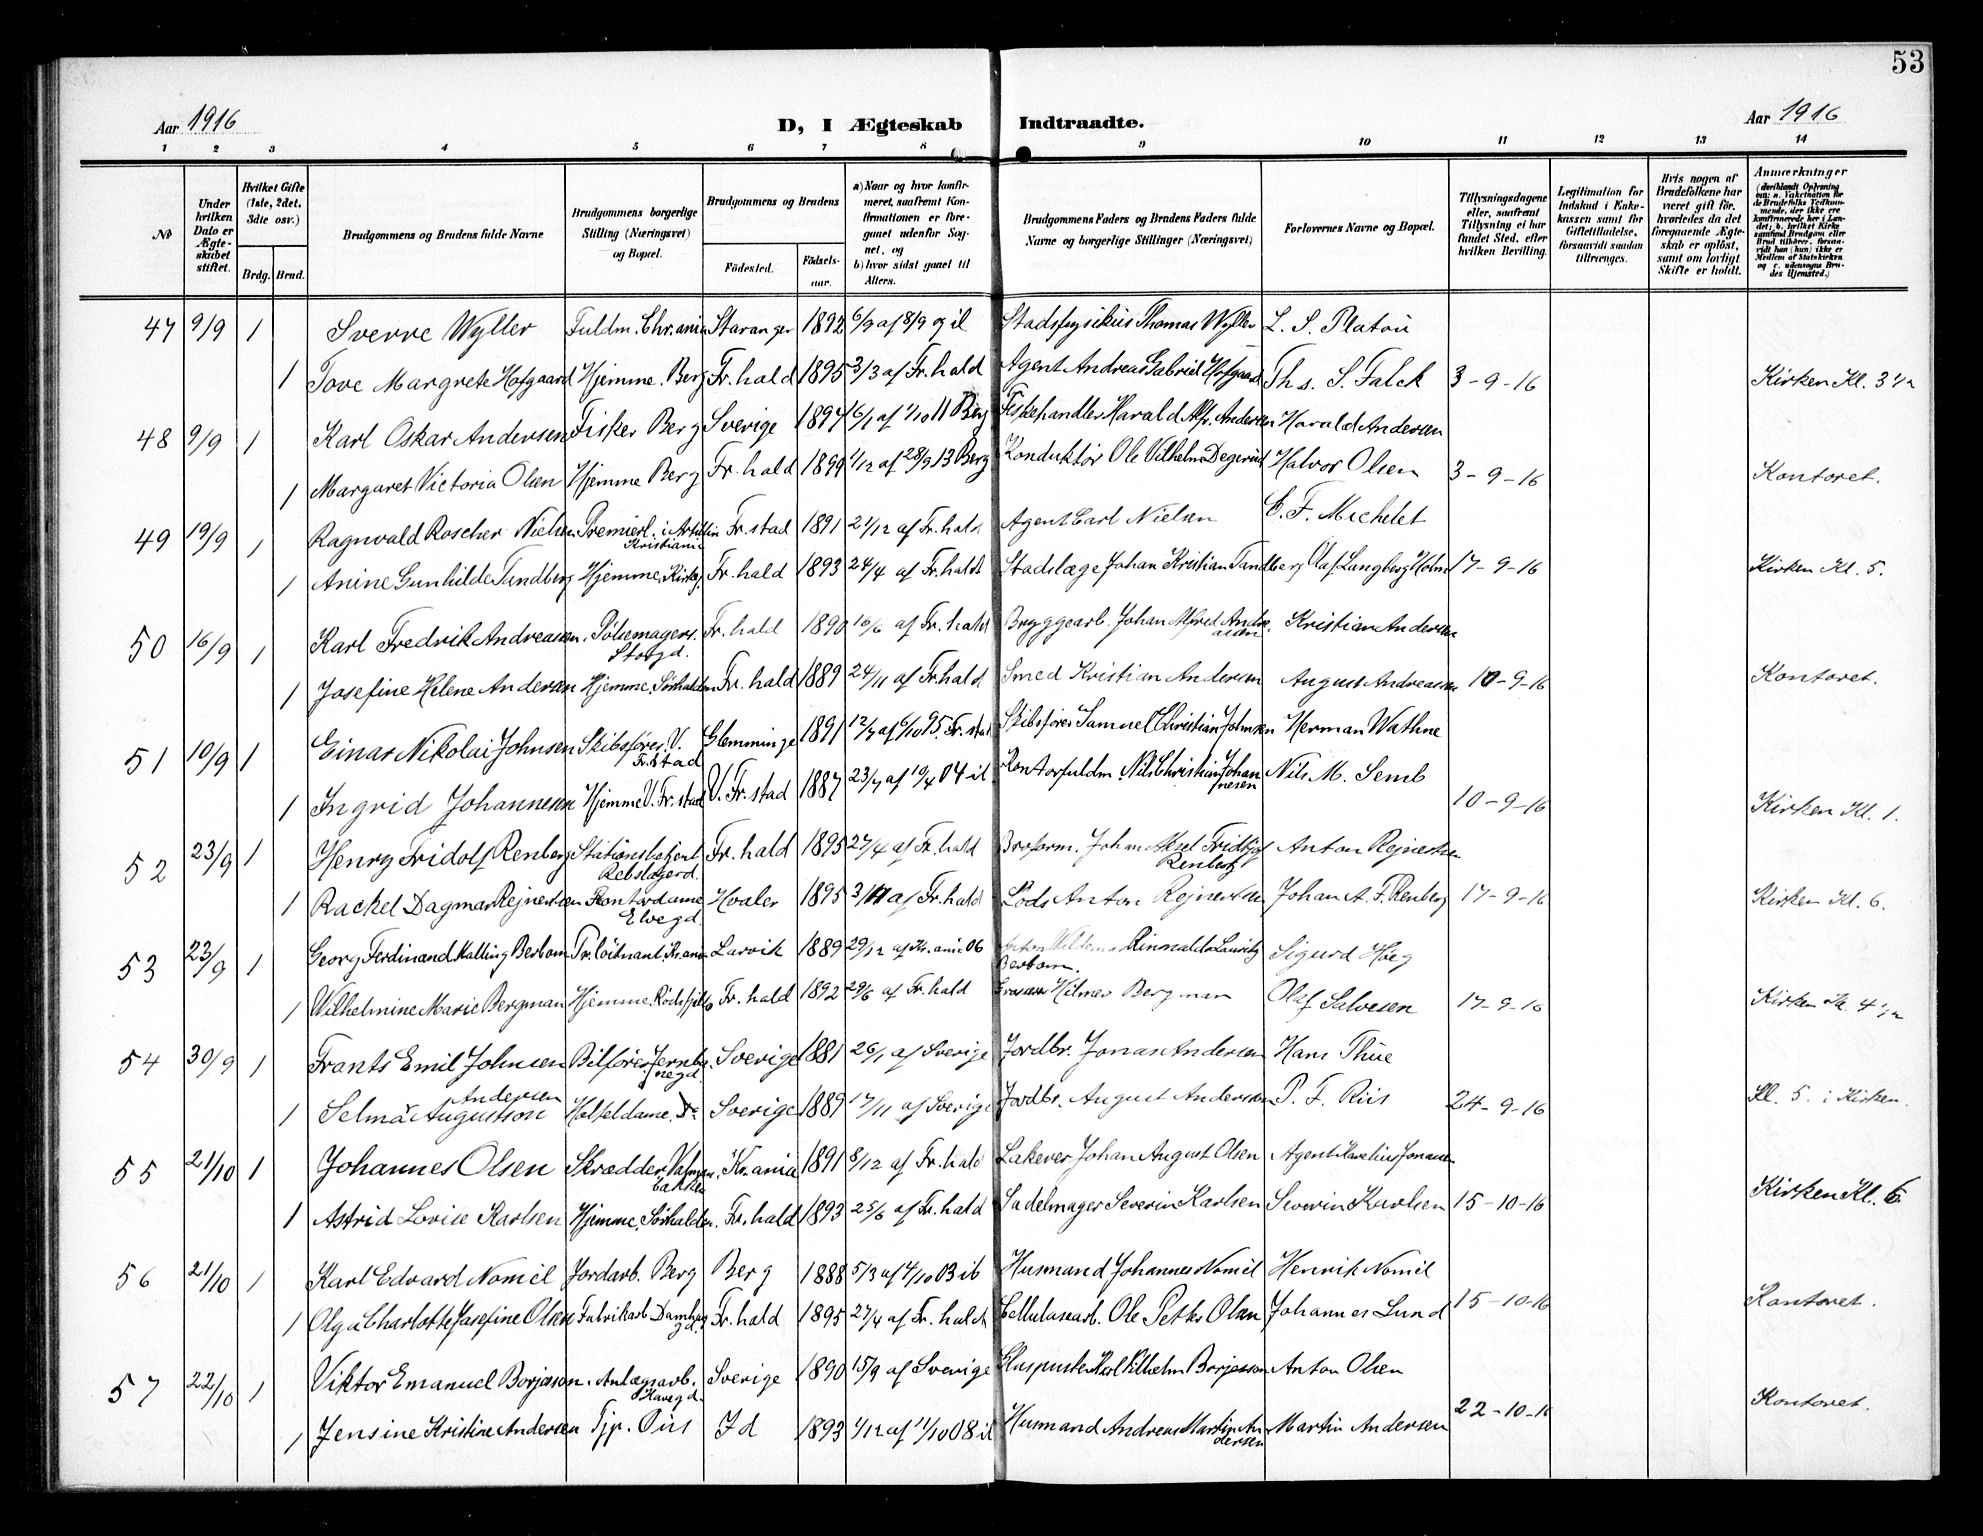 53
Aar 1916 D, I Ægteskab Indtraadte. Aar 1916
1 2 3 4 5 6 7 8 9 10 11 12 13 14
No
Under hvilken Dato er Ægteskabet stiftet.
Hvilket Gifte (1ste, 2det, 3die osv.)
Brdg. Brud.
Brudgommens og Brudens fulde Navne
Brudgommens borgerlige Stilling (Næringsvei) og Bopæl.
Brudgommens og Brudens
Födested. Födsels-aar.
a) Naar og hvor konfirmeret, saafremt Konfirmationen er foregaaet udenfor Sognet, og
b) hvor sidst gaaet til Alters.
Brudgommens Faders og Brudens Faders fulde Navne og borgerlige Stillinger (Næringsvei)
Forlovernes Navne og Bopæl.
Tillysningsdagene eller, saafremt Tillysning ei har fundet Sted, efter hvilken Bevilling.
Legitimation for Indskud i Enkekassen samt for Giftetilladelse, forsaavidt saadan tiltrænges.
Hvis nogen af Brudefolkene har været gift för, hvorledes da det foregaaende Ægteskab er oplöst, samt om lovligt Skifte er holdt.
Anmærkninger
47 9/9 1 Sverre Wyller Fuldm. Chr.ania Stavanger 1892 6/9 af 8/9 og il Stadsfysikus Thomas Wyller L. S. Platou
1 Tove Margrete Hofgaard Hjemme. Berg Fr.hald 1895 3/3 af Fr.hald Agent Andreas Gabriel Hofgaard Ths. S. Falck 3-9-16 Kirken Kl. 3 1/2
48 9/9 1 Karl Oskar Andersen Fisker Berg Sverige 1894 Berg Fiskehandler Harald Alfr. Andersen Harald Andersen
1 Margaret Victoria Olsen Hjemme Berg Fr.hald 1899 1/12 af 28/9 13 Berg Konduktör Ole Vilhelm Degerud Halvor Olsen 3-9-16 Kontoret.
49 19/9 1 Ragnvald Roscher Nielsen Premierl. i Artilliin Kristiania Fr.stad 1891 21/12 af Fr.hald Agent Carl Nielsen C. F. Michelet
1 Anine Gunhilde Tandberg Hjemme, Kirkeg. Fr.hald 1893 24/4 af Fr.hald Stadslæge Johan Kristian Tandberg Olaf Langberg Holm 17-9-16 Kirken Kl. 5.
50 16/9 1 Karl Fredrik Andreasen Pölsemagers. Storgd. Fr.hald 1890 16/6 af Fr.hald Bryggearb. Johan Alfred Andreasen Kristian Andersen
1 Josefine Helene Andersen Hjemme, Sörhalden Fr.hald 1889 24/11 af Fr.hald Smed Kristian Andersen August Andreasen 10-9-16 Kontoret.
51 10/9 1 Einar Nikolai Johnsen Skibsförer V. Fr.stad Glemminge 1891 12/7 af 6/10 95. Fr.stad Skibsförer Samuel Christian Johnsen Herman Wathne
1 Ingrid Johannesen Hjemme V. Fr.stad V. Fr.stad 1887 23/7 af 10/4 04 il Kontorfuldm Nils Christian Johannesen Nils M. Semb 10-9-16 Kirken Kl. 1.
52 23/9 1 Henry Fridolf Renberg Stationsbetjent Rebslagerd. Fr.hald 1895 27/4 af Fr.hald Broform. Johan Aksel Fridtjof Renberg Anton Rejnertsen
1 Rackel Dagmar Rejnertsen Kontordame Elvegd. Hvaler 1895 3/11 af Fr.hald Lods Anton Rejnertsen Johan A. F. Renberg 17-9-16 Kirken Kl. 6.
53 23/9 1 Georg Ferdinand Malling Berbom Pr.löitnant, Kr.ania Larvik 1889 29/12 af Kr.ania 06 Rinnaldo Lauritz Berbom. Sigurd Höeg
1 Wilhelmine Marie Bergman Hjemme, Rödsfjeldet Fr.hald 1892 29/6 af Fr.hald Hilmer Bergman Olaf Salvesen 17-9-16 Kirken Kl. 4 1/2
54 30/9 1 Frants Emil Johnsen Bilförer Jernbanegd. Sverige 1881 26/1 af Sverige Jordbr. Jonas Andersen Hans Thüe
1 Selma Augustson Andersen Hotseldame, Do Sverige 1889 17/11 af Sverige Jordbr. August Anderson P. F. Riis 24-9-16 Kl. 5. i Kirken.
55 21/10 1 Johannes Olsen Skrædder, Valmanbakken Kr.ania 1891 8/12 af Fr.hald Lakerer Johan August Olsen Agent Jonassen
1 Astrid Lovise Karlsen Hjemme, Sörhalden. Fr.hald 1893 25/6 af Fr.hald Sadelmager Severin Karlsen Severin Karlsen 15-10-16 Kirken Kl. 6
56 21/10 1 Karl Edvard Nomél Jordarb. Berg Berg 1888 5/3 af 4/10 03 ib Husmand Johannes Nomél Henrik Nomél
1 Olga Charlotte Josefine Olsen Fabrikarb Damhaug gd. Fr.hald 1895 27/4 af Fr.hald Cellulosearb. Ole Petter Olsen Johannes Lund 15-10-16 Kontoret.
57 22/10 1 Viktor Emanuel Borjeson. Anlægsarb. Havegd. Sverige 1890 15/9 af Sverige Glaspuster Karl Vilhelm Borjesson Anton Olsen
1 Jensine Kristine Andersen Tjp. Öiis Id 1893 1/12 af 11/10 08 il Husmand Andreas Martin Andersen Martin Andersen 22-10-16 Kontoret.